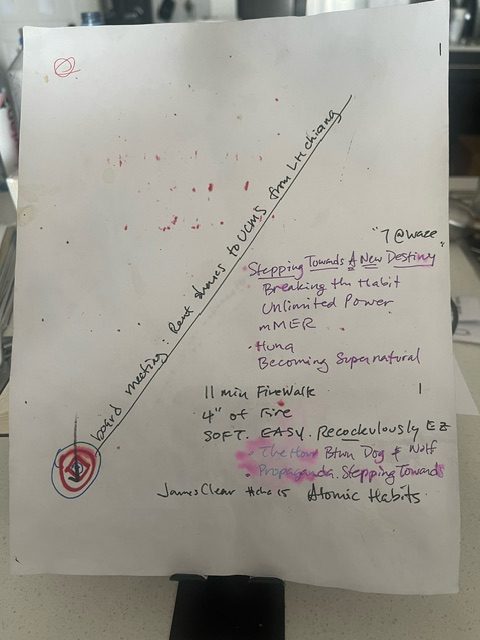 board meeting: Rent shares to UCMS from
"7 @waze"
Stepping Towards A New Destiny
Breaking the Habit
Unlimited Power
mMER
Huna
Becoming Supernatural
11 min FireWalk
4" of Fire
SOFT. EASY. Recockulously EZ
The Hour Btwn Dog & Wolf
Propaganda. Stepping Towards
James Clear Atomic Habits